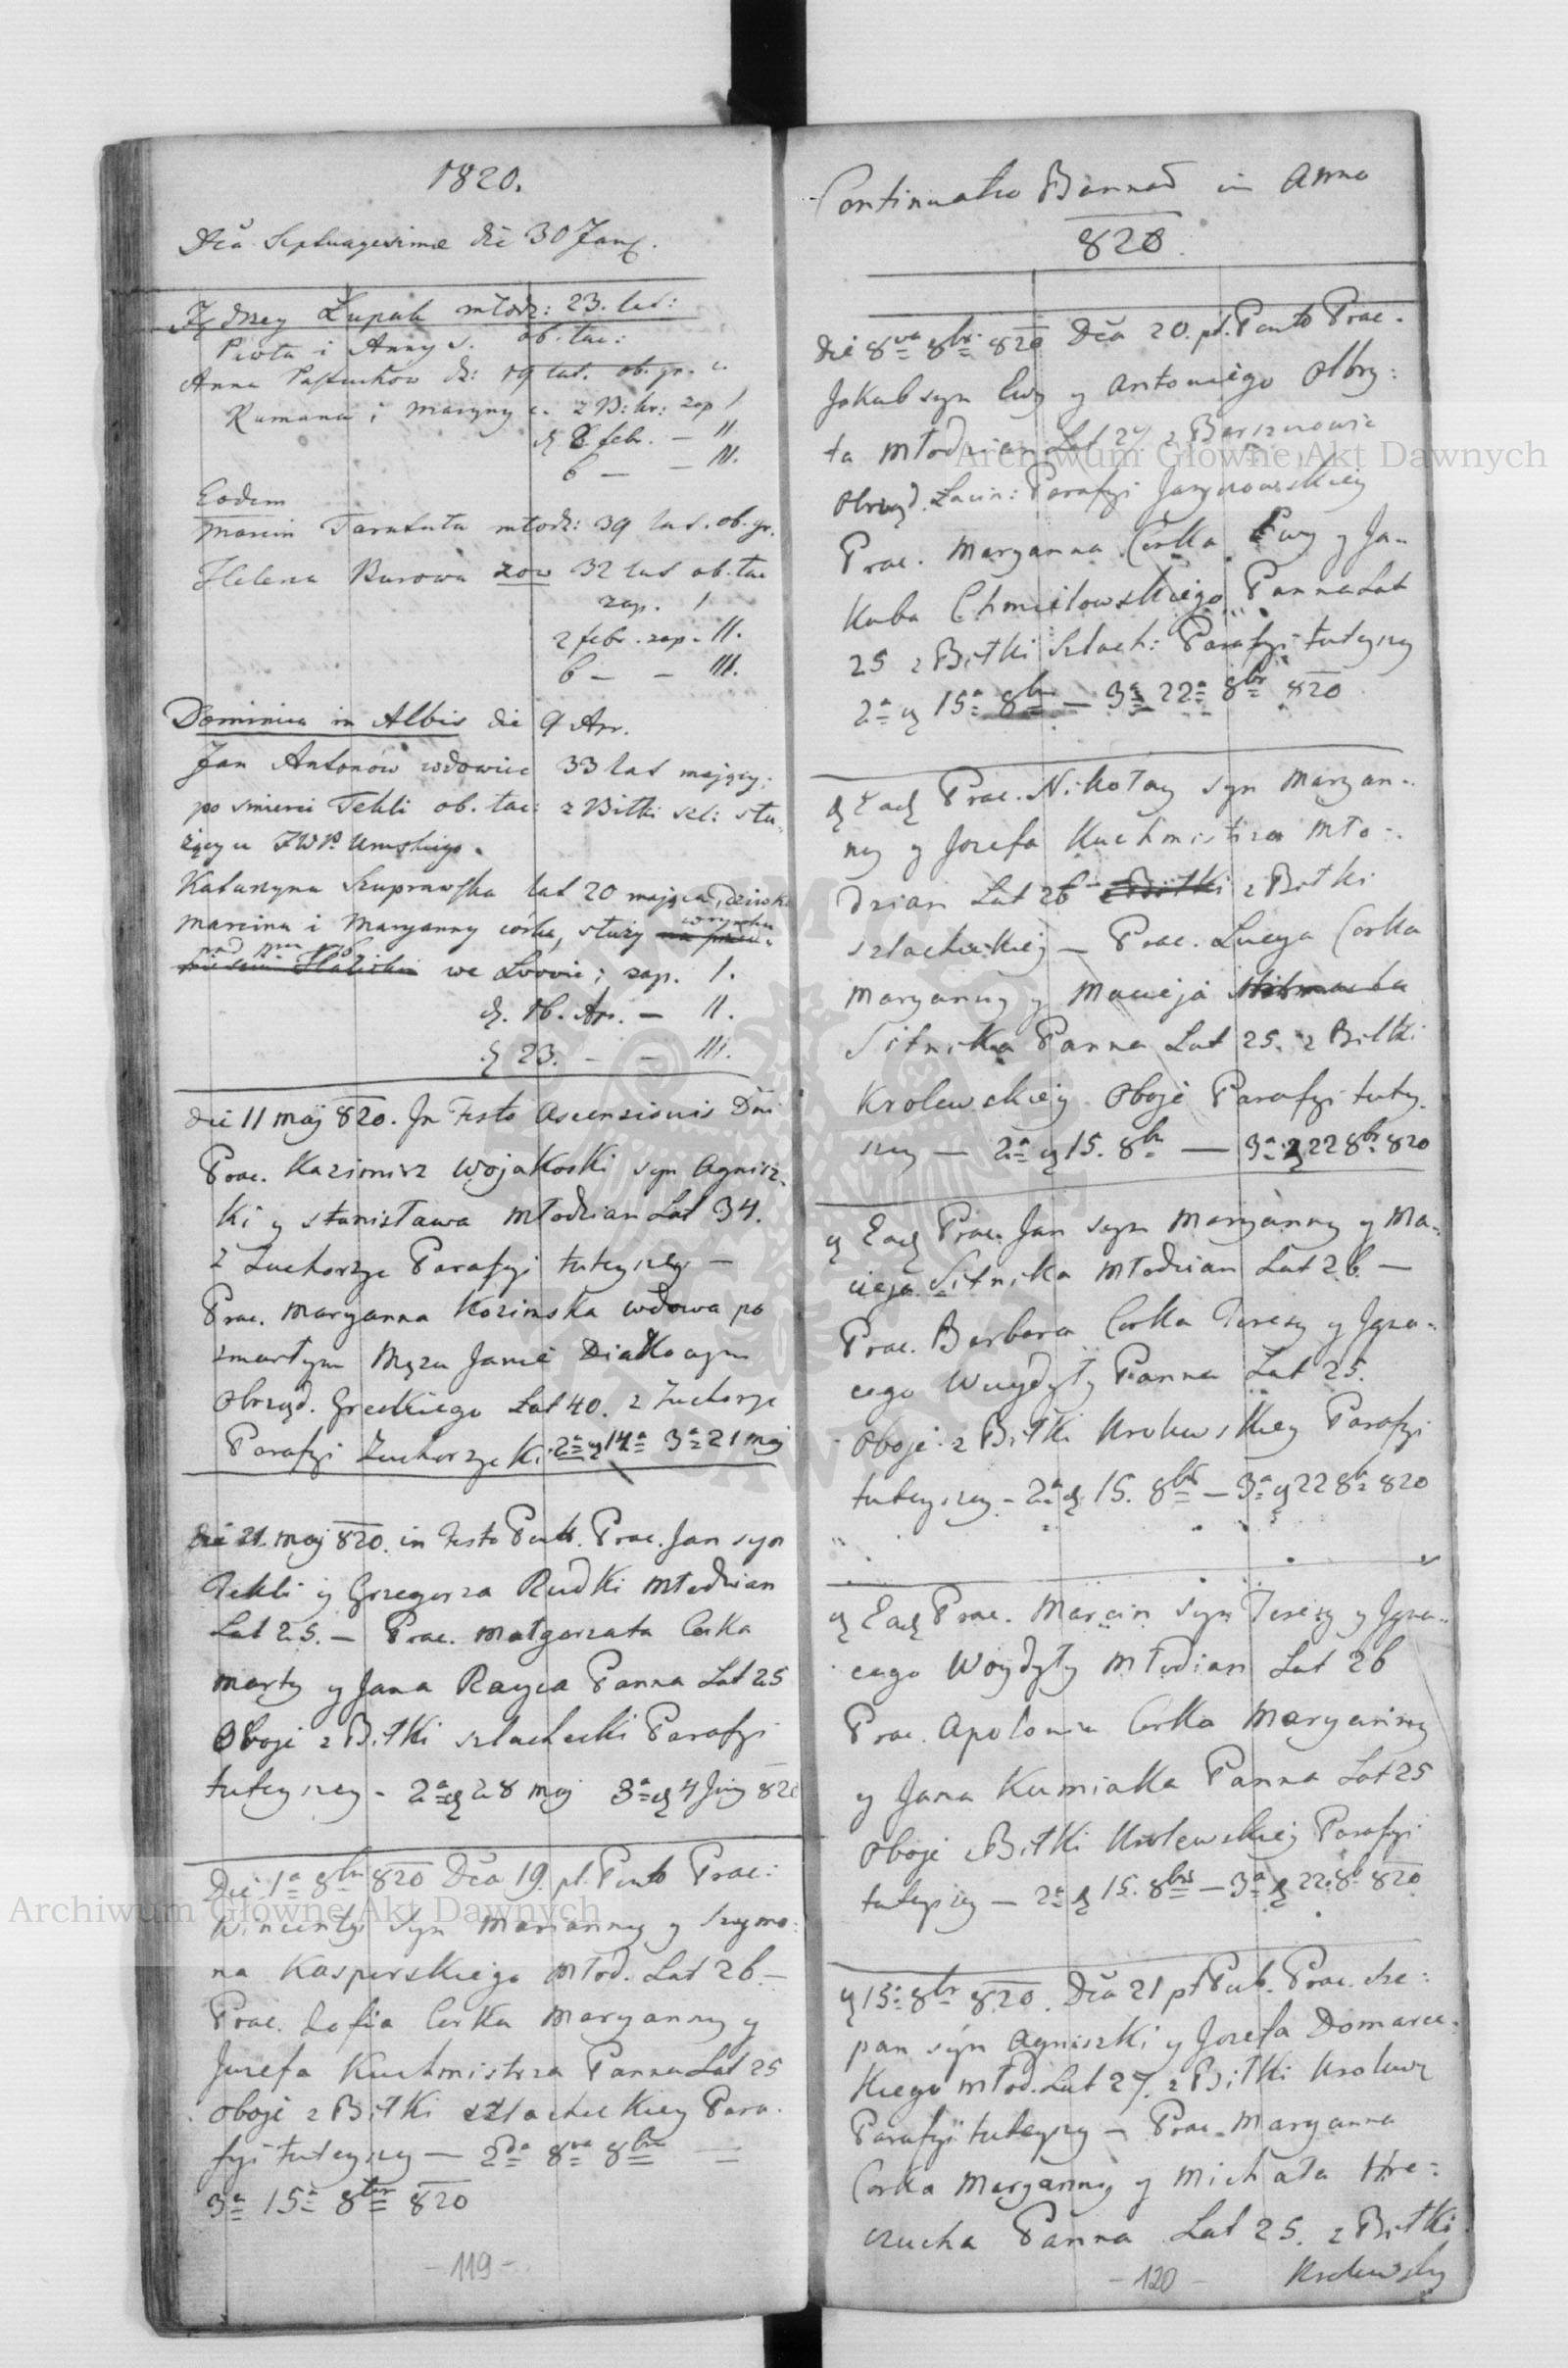 1820.
Dca Septuagesimae die 30 Jan.
Jędrzey Łupak młodz: 23. lat:
Piotra i Anny s. ob. łac:
Anna Pastuchów dz: 19 lat. ob. gr. c.
Romana i Maryny c. z B: kr: zap I
d 2 febr. — II.
6 — — III.
Eodem
Marcin Taratuta młodz: 39 lat. ob. gr.
Helena Burowa 32 lat ob. łac
zap. I
2 febr. zap. II.
6 — — III.
Dominica in Albis die 9 Apr.
Jan Antonów wdowiec 33 lat mający;
po smierci Tekli ob. łac: z Biłki szl: słu-
żący u JWP. Umskiego.
Katarzyna Szuprowska lat 20 mająca, dziewka
Marcina i Maryanny córka, służy
we Lwowie; zap. I.
d. 16. Apr. — II.
d 23. — — III.
Die 11 maj 820. In Festo Ascensionis Dni
Prac. Kazimirz Wojakoski syn Agnisz-
ki y Stanisława Młodzian Lat 34.
z Zuchorzyc Parafyi tuteyszey —
Prac. Maryanna Kozimska wdowa po
zmarłym Mężu Janie Diatkoaym
Obrząd. Greckiego Lat 40. z Zuchorzyc
Parafyi Zuchorzycki 2a d 14a 3a 21 maj
Die 21. maj 820. in Festo Pent. Prac. Jan syn
Tekli y Grzegorza Rudki Młodzian
Lat 25. — Prac. Małgorzata Corka
Marty y Jana Rayca Panna Lat 25
Oboje z Biłki szlacheckiI Parafyi
tuteyszey - 2a d 28 maj 3a d 4 Juny 820
Die 1a 8bris 820 Dca 19. pt. Pent Prac:
Wincenty syn Marianny y Szymo:
na Kasperskiego Młod. Lat 26 —
Prac. Zofia Corka Maryanny y
Jozefa Kuchmistrza Panna Lat 25
oboje z Biłki szlacheckiey Para-
fyi tuteyszey — 2da 8va 8bris —
3a 15a 8bris 820
- 119 -
Continuatio Bannor in Anno
820.
Die 8va 8bris 820 Dca 20. pt. Pent Prac.
Jakub syn Ewy y Antoniego Olbry:
ta Młodzian Lat 27 z Barszczowic
Obrząd. Łacin: Parafyi Jaryczowskiey
Prac. Maryanna Corka Ewy y Ja-
kuba Chmielowskiego Panna Lat
25 z Biłki Szlach: Parafyi tuteyszy
2a d 15a 8bris — 3a 22a 8bris 820
d Ead Prac. Nikołay syn Maryan-
ny y Jozefa Kuchmistrza Mło-
dzian Lat 26 z Biłki z Biłki
szlacheckiej — Prac. Lucya Corka
Maryanny y Macieja
Sitnika Panna Lat 25. z Biłki
Krolewskiey Oboje Parafyi tutey-
szey — 2a d 15. 8bris — 3a d 22 8bris 820
d Ead Prac. Jan syn Maryanny y Ma-
cieja Sitnika Młodzian Lat 26 —
Prac. Barbara Corka Teresy y Igna-
cego Woydyły Panna Lat 25.
oboje z Biłki Krolewskiey Parafyi
tuteyszey - 2a d 15. 8bris — 3a d 22 8bris 820
d Ead Prac. Marcin syn Teresy y Igna-
cego Woydyły Młodzian Lat 26
Prac. Apolonia Corka Maryanny
y Jana Kumiaka Panna Lat 25
oboje z Biłki Krolewskiey Parafyi
tuteyszey — 2a d 15. 8bris — 3a d 22. 8b 820
d 15a 8bris 820. Dca 21 pt Pent. Prac. Szcze:
pan syn Agniszki y Jozefa Domarec-
kiego Młod. Lat 27. z Biłki Krolew
Parafyi tuteyszy — Prac. Maryanna
Corka Maryanny y Michała Hre-
czucha Panna Lat 25. z Biłki
Krolewsky
- 120 -
Archiwum Główne Akt Dawnych
Archiwum Główne Akt Dawnych